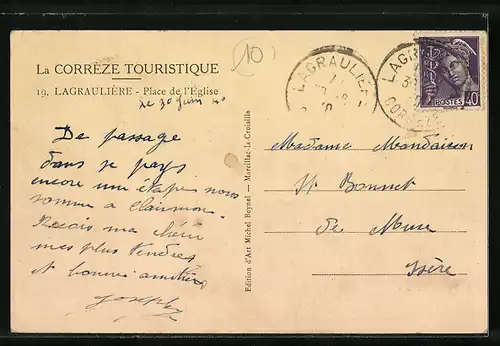 La CORRÈZE TOURISTIQUE
19. LAGRAULIÈRE - Place de l'Église
le 30 Juin 40
De passage
dans se pays
encore une étape nous
somme a Clairmon.
Recois ma chérie
mes plus tendres
et bonnes amitiés
Joseph
Edition d'Art Michel Beynel — Marcillac-la-Croisille
10
LAGRAULIÈRE
LAGR
CORRÈZE
POSTES 40
Madame Mandaison
St Bonnet
de Mure
Isère